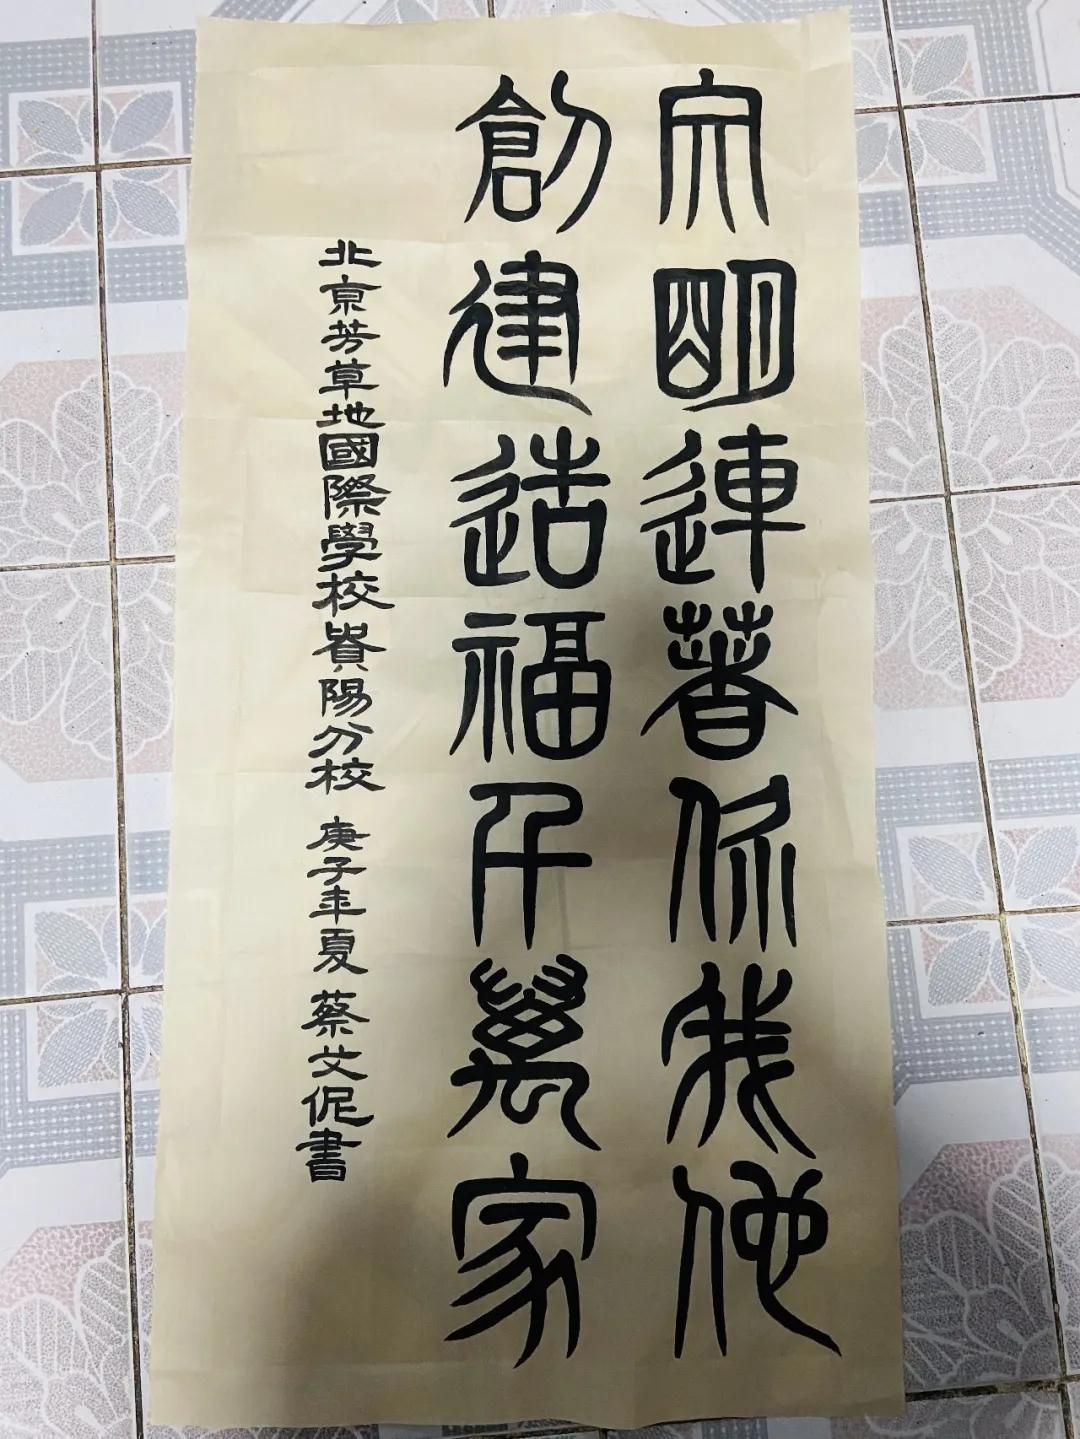 文明連著你我他
創建造福千萬家
北亰芳草地國際學校貴陽分校 庚子年夏 蔡艾伲書